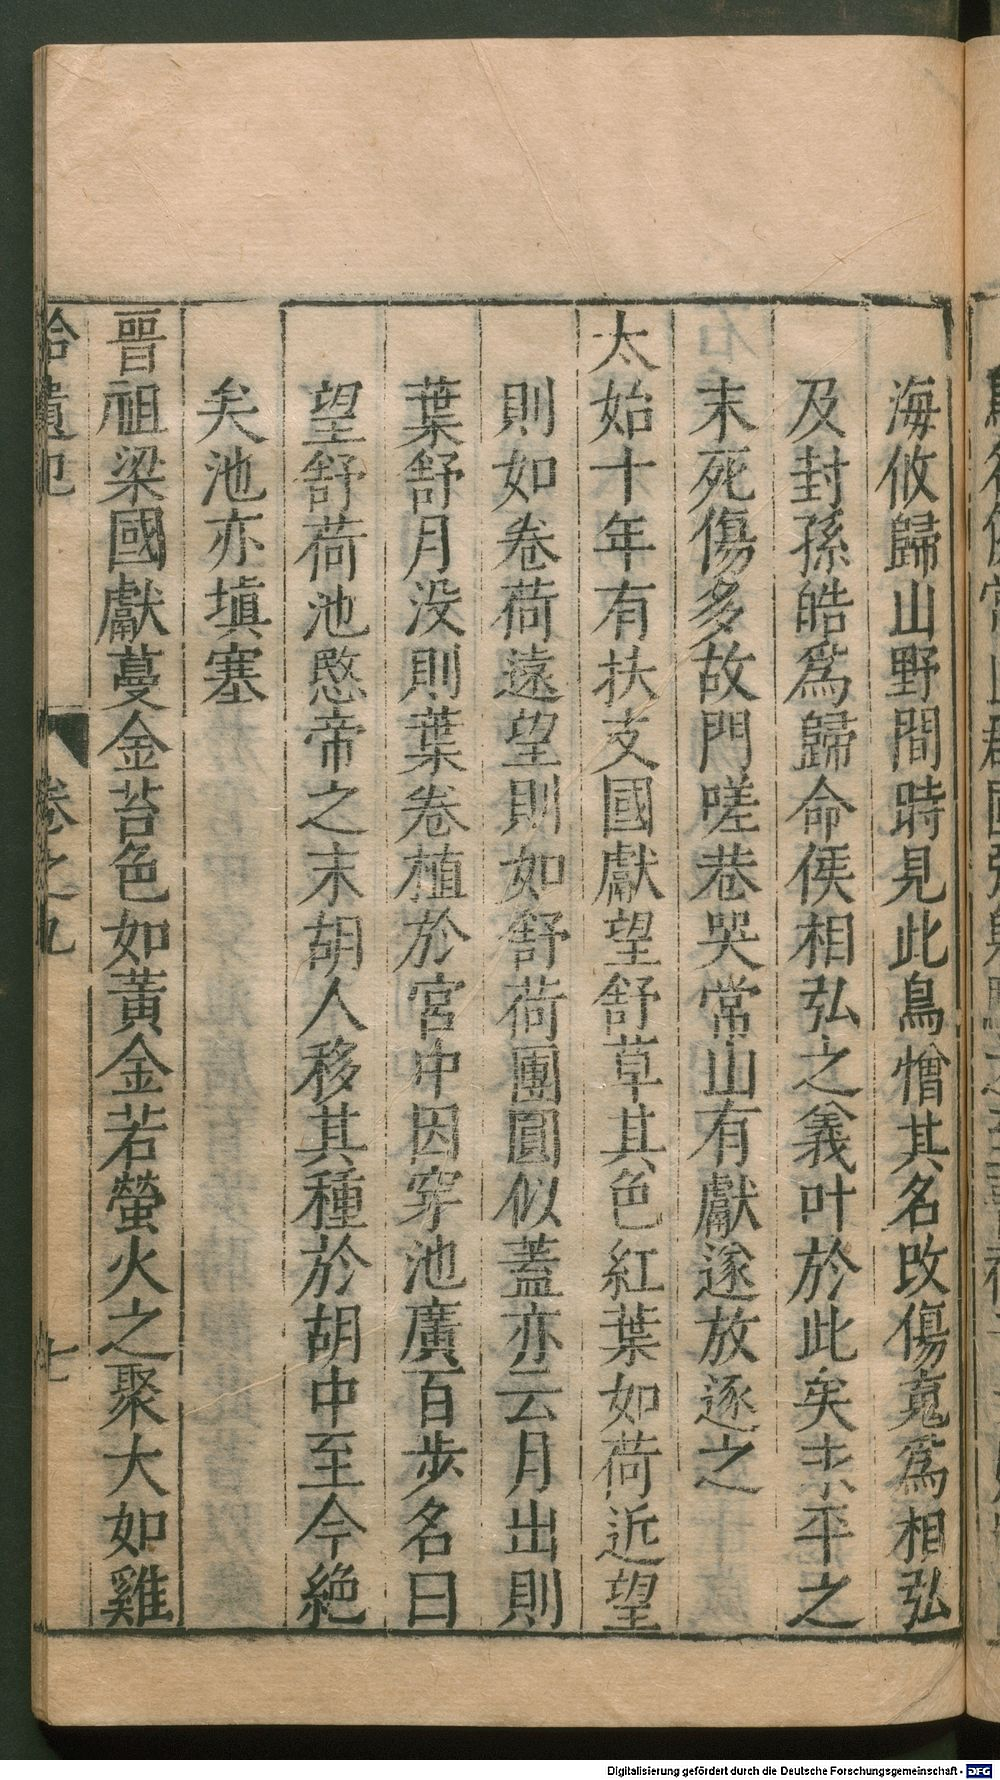 海攸歸山野間時見此鳥憎其名改傷䰟爲相弘
及封孫皓爲歸命侯相弘之義叶於此矣永平之
末死傷多故門嗟巷哭常山有獻遂放逐之
太始十年有扶支國獻望舒草其色紅葉如荷近望
則如卷荷遠望則如舒荷團圓似蓋亦云月出則
葉舒月没則葉卷植於宮中因穿池廣百步名曰
望舒荷池愍帝之末胡人移其種於胡中至今絶
矣池亦塡塞
晋祖梁國獻蔓金苔色如黃金若螢火之聚大如雞
拾遺記 卷之九 七
Digitalisierung gefördert durch die Deutsche Forschungsgemeinschaft - DFG